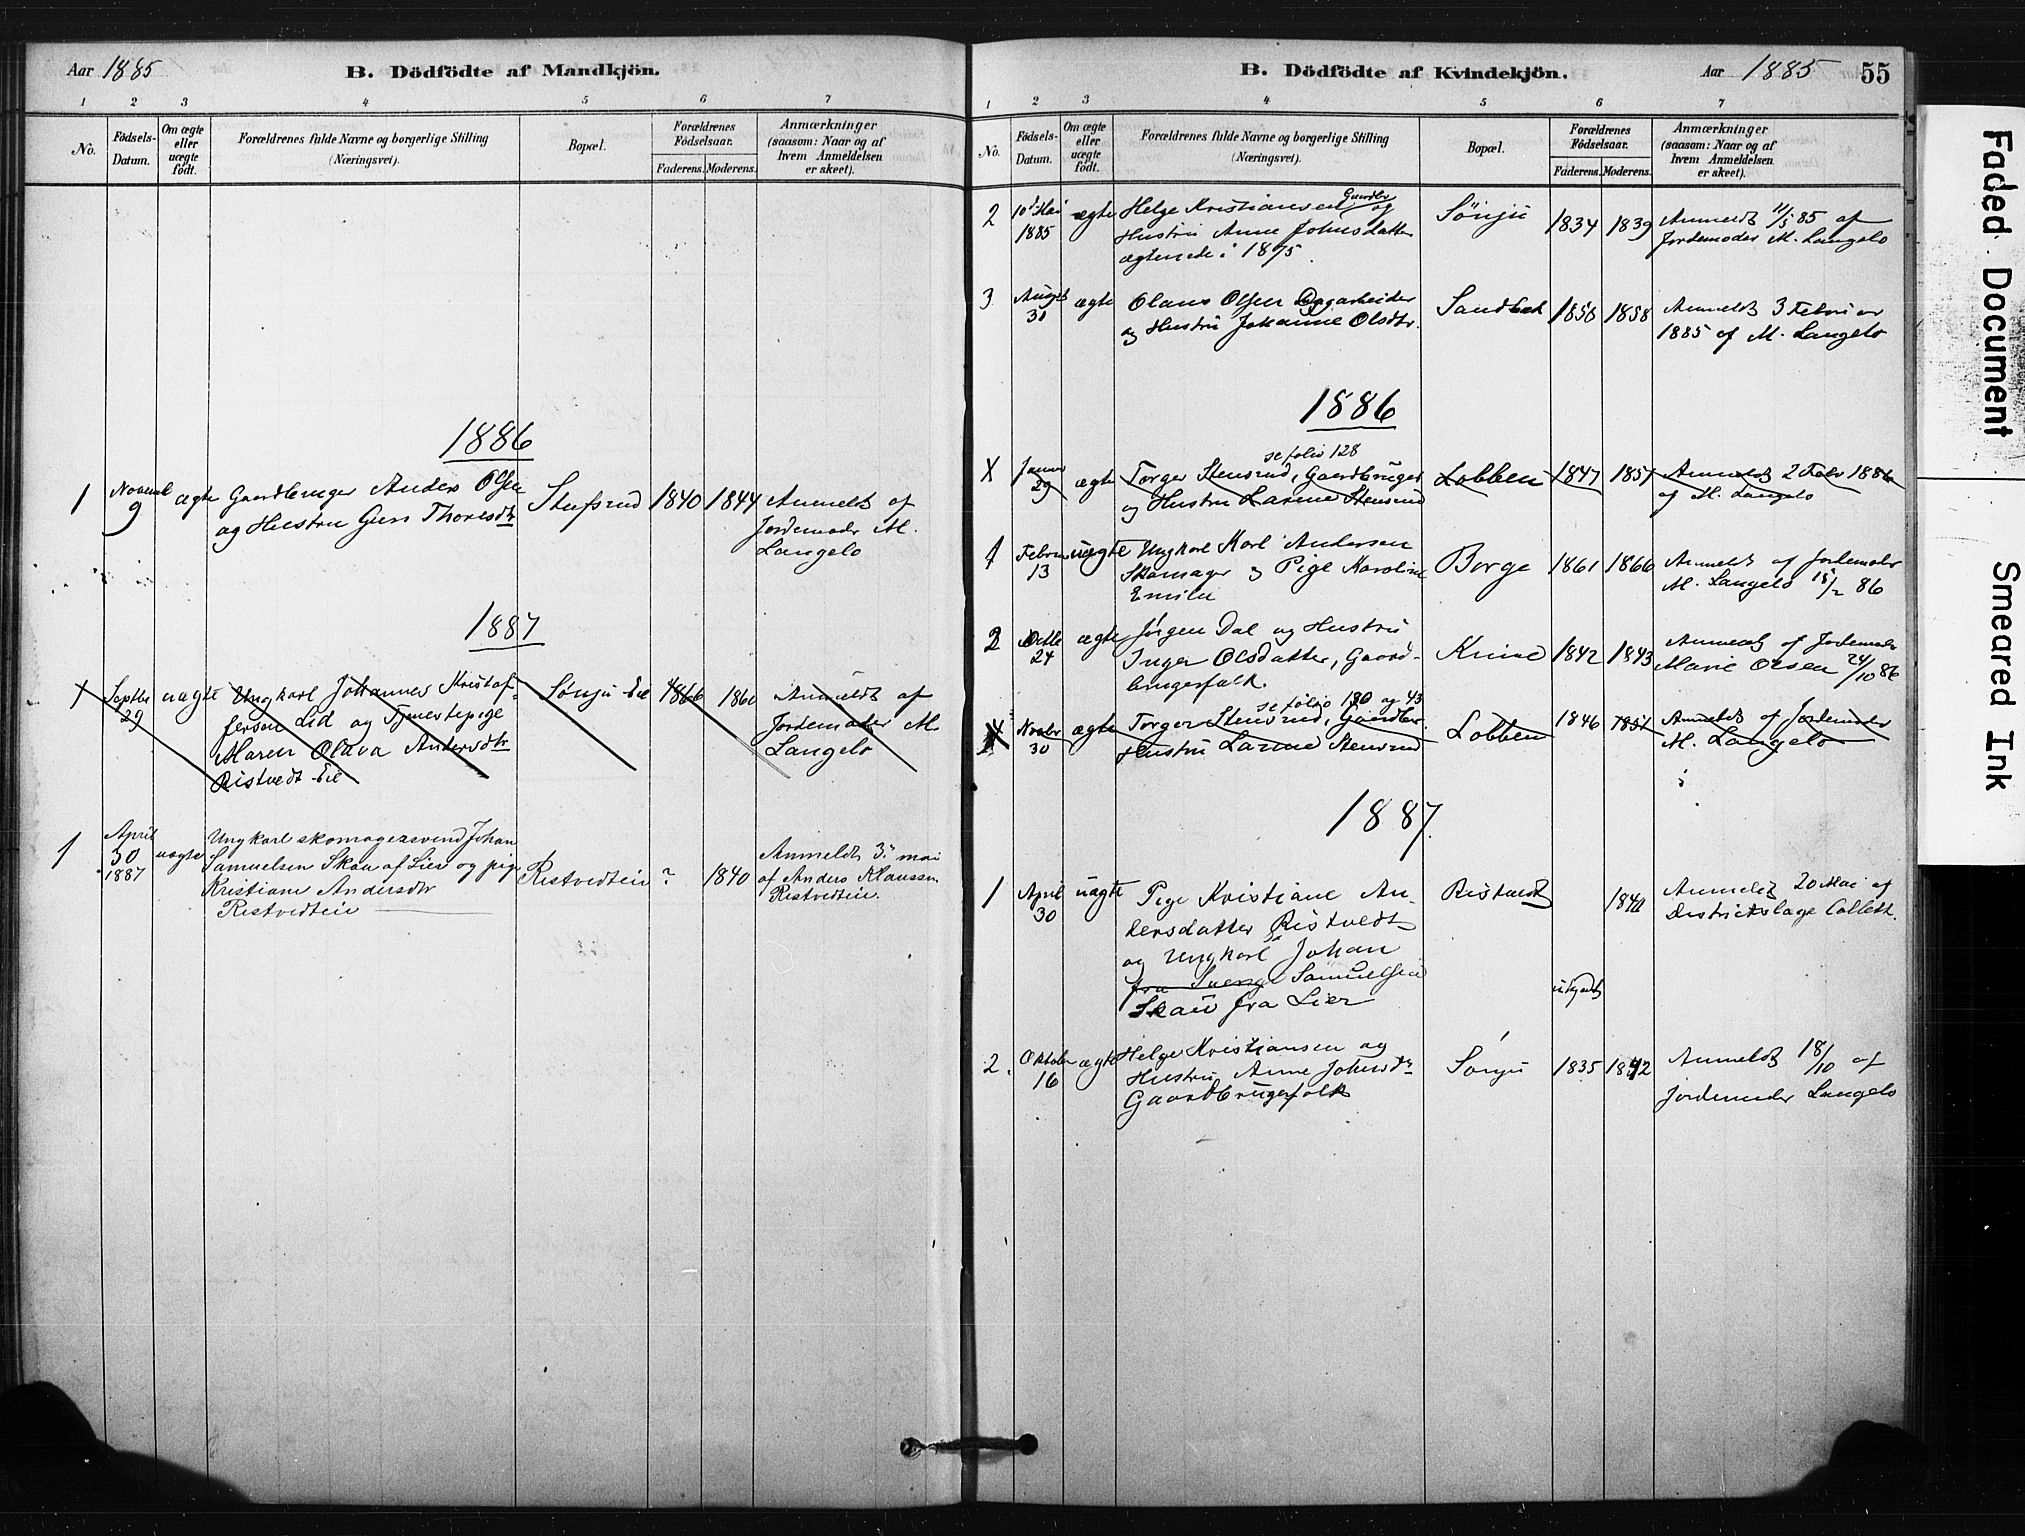 Aar 1885
B. Dödfödte af Mandkjön.
1 2 3 4 5 6 7
No.
Födsels-Datum.
Om ægte eller uægte födt.
Forældrenes fulde Navne og borgerlige Stilling
(Næringsvei).
Bopæl.
Forældrenes Födselsaar.
Faderens. Moderens.
Anmærkninger
(saasom: Naar og af
hvem Anmeldelsen
er skeet).
1886
1 Novemb 9 ægte
Gaardbruger Anders Olsen
og Hustru Guri Thoresdtr
Stufsrud 1840 1844
Anmeldt af
Jordemoder M.
Langelo
1887
1 Septbr 29 uægte
Ungkarl Johannes Kristof-
fersen Lid og Tjenestepige
Maren Olava Andersdtr
Ristvedt Eie
Sönju Eie 1866 1860
Anmeldt af
Jordemoder M
Langelo
1 April 30 1887 uægte
Ungkarl skomagersvend Johan
Samuelsen Skau af Lier og pige
Kristiane Andersdtr
Ristvedteie
Ristvedteie ? 1840
Anmeldt 3. mai
af Anders Klaussen
Ristvedteie.
B. Dödfödte af Kvindekjön.
Aar 1885 55
1 2 3 4 5 6 7
No.
Födsels-Datum.
Om ægte eller uægte födt.
Forældrenes fulde Navne og borgerlige Stilling
(Næringsvei).
Bopæl.
Forældrenes Födselsaar.
Faderens. Moderens.
Anmærkninger
(saasom: Naar og af
hvem Anmeldelsen
er skeet).
2 10 Mai 1885 ægte
Helge Kristiansen Gaardbr og
Hustru Anne Johnsdatter
ægteviede i 1875
Sönju 1834 1839
Anmeldt 11/5 85 af
Jordemoder M. Langelo
3 August 31 ægte
Olaus Olsen Dagarbeider
og Hustru Johanne Olsdtr.
Sandbæk 1858
Anmeldt 3 Februar
1885 af M. Langelo
1886
se folio 128
1 Januar 29 ægte
Torger Stensrud, Gaardbruger
og Hustru Larine Stensrud
Lobben 1847 1851
Anmeldt 2 Febr 1886
af M. Langelo
1 Februar 13 uægte
Ungkarl Karl Andersen
Skomager og Pige Karoline
Emilie
Borge 1861 1866
Anmeldt af Jordemoder
M. Langelo 15/2 86
2 Octbr 24 ægte
Jörgen Dal og Hustru
Inger Olsdatter, Gaard-
brugerfolk.
1842 1843
Anmeldt af Jordemoder
Marie Olsen 24/10 86
se folio 130 og 43
Novbr 30 ægte
Torger Stensrud, Gaardbr.
Hustru Larine Stensrud
Lobben 1846 1851
Anmeldt af Jordemoder
M. Langelo
1887.
1 April 30 uægte
Pige Kristiane An-
dersdatter Ristvedt
og Ungkarl Johan
fra Sverige Samuelsen
Skau fra Lier
Ristvedt ubekjendt 1840
Anmeldt 20 Mai af
Districtslæge Collett.
2. Oktober 16 ægte
Helge Kristiansen og
Hustru Anne Johnsdtr
Gaardbrugerfolk
Sönju 1835 1842
Anmeldt 18/10 af
Jordemoder Langelo
Faded Document
Smeared Ink